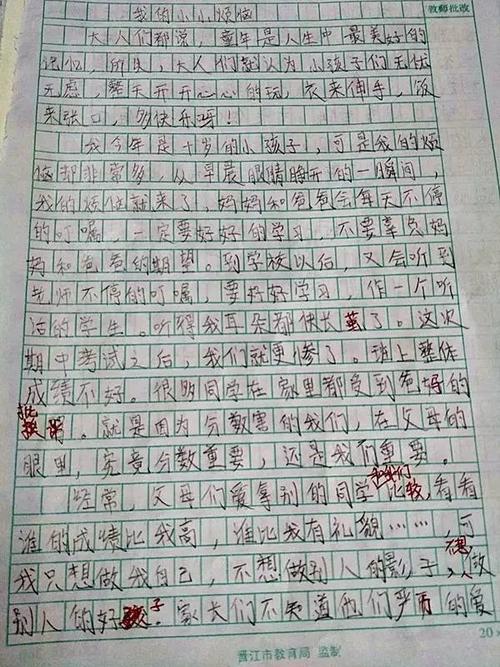 我的小小烦恼
教师批改
大人们都说，童年是人生中最美好的
记忆，所以，大人们就认为小孩子们无忧
无虑，整天开开心心的玩，衣来伸手，饭
来张口，多快乐呀！
我今年是十岁的小孩子，可是我的烦
恼却非常多，从早晨眼睛睁开的一瞬间，
我的烦恼就来了，妈妈和爸爸会每天不停
的叮嘱，一定要好好的学习，不要辜负妈
妈和爸爸的期望。到学校以后，又会听到
老师不停的叮嘱，要好好学习，作一个听
话的学生。听得我耳朵都快长茧了。这次
期中考试之后，我们就更惨了。班上整体
成绩不好。很多同学在家里都受到爸妈的
批评。就是因为分数害的我们，在父母的
眼里，究竟分数重要，还是我们重要。
经常，父母们爱拿别的同学和我们比较，看看
谁的成绩比我高，谁比我有礼貌……，可
我只想做我自己，不想做别人的影子，不想做
别人的好孩子。家长们不知道他们严而的爱
20×
晋江市教育局 监制